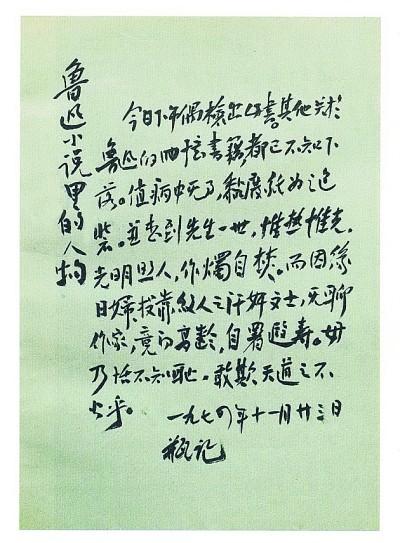 鲁迅小说里的人物
今日下午偶檢出此書。其他关於
鲁迅的回忆書籍都已不知下
落。值病中无事,黏废纸为之
装。並想到先生一世,惟热惟光,
光明照人,作烛自焚。而因缘
日婦,投靠敌人之汗奸文士,无聊
作家,竟得高龄,自署遐寿。毋
乃恬不知耻。敢欺天道之不
公乎。一九七四年十一月廿三日
瓶记